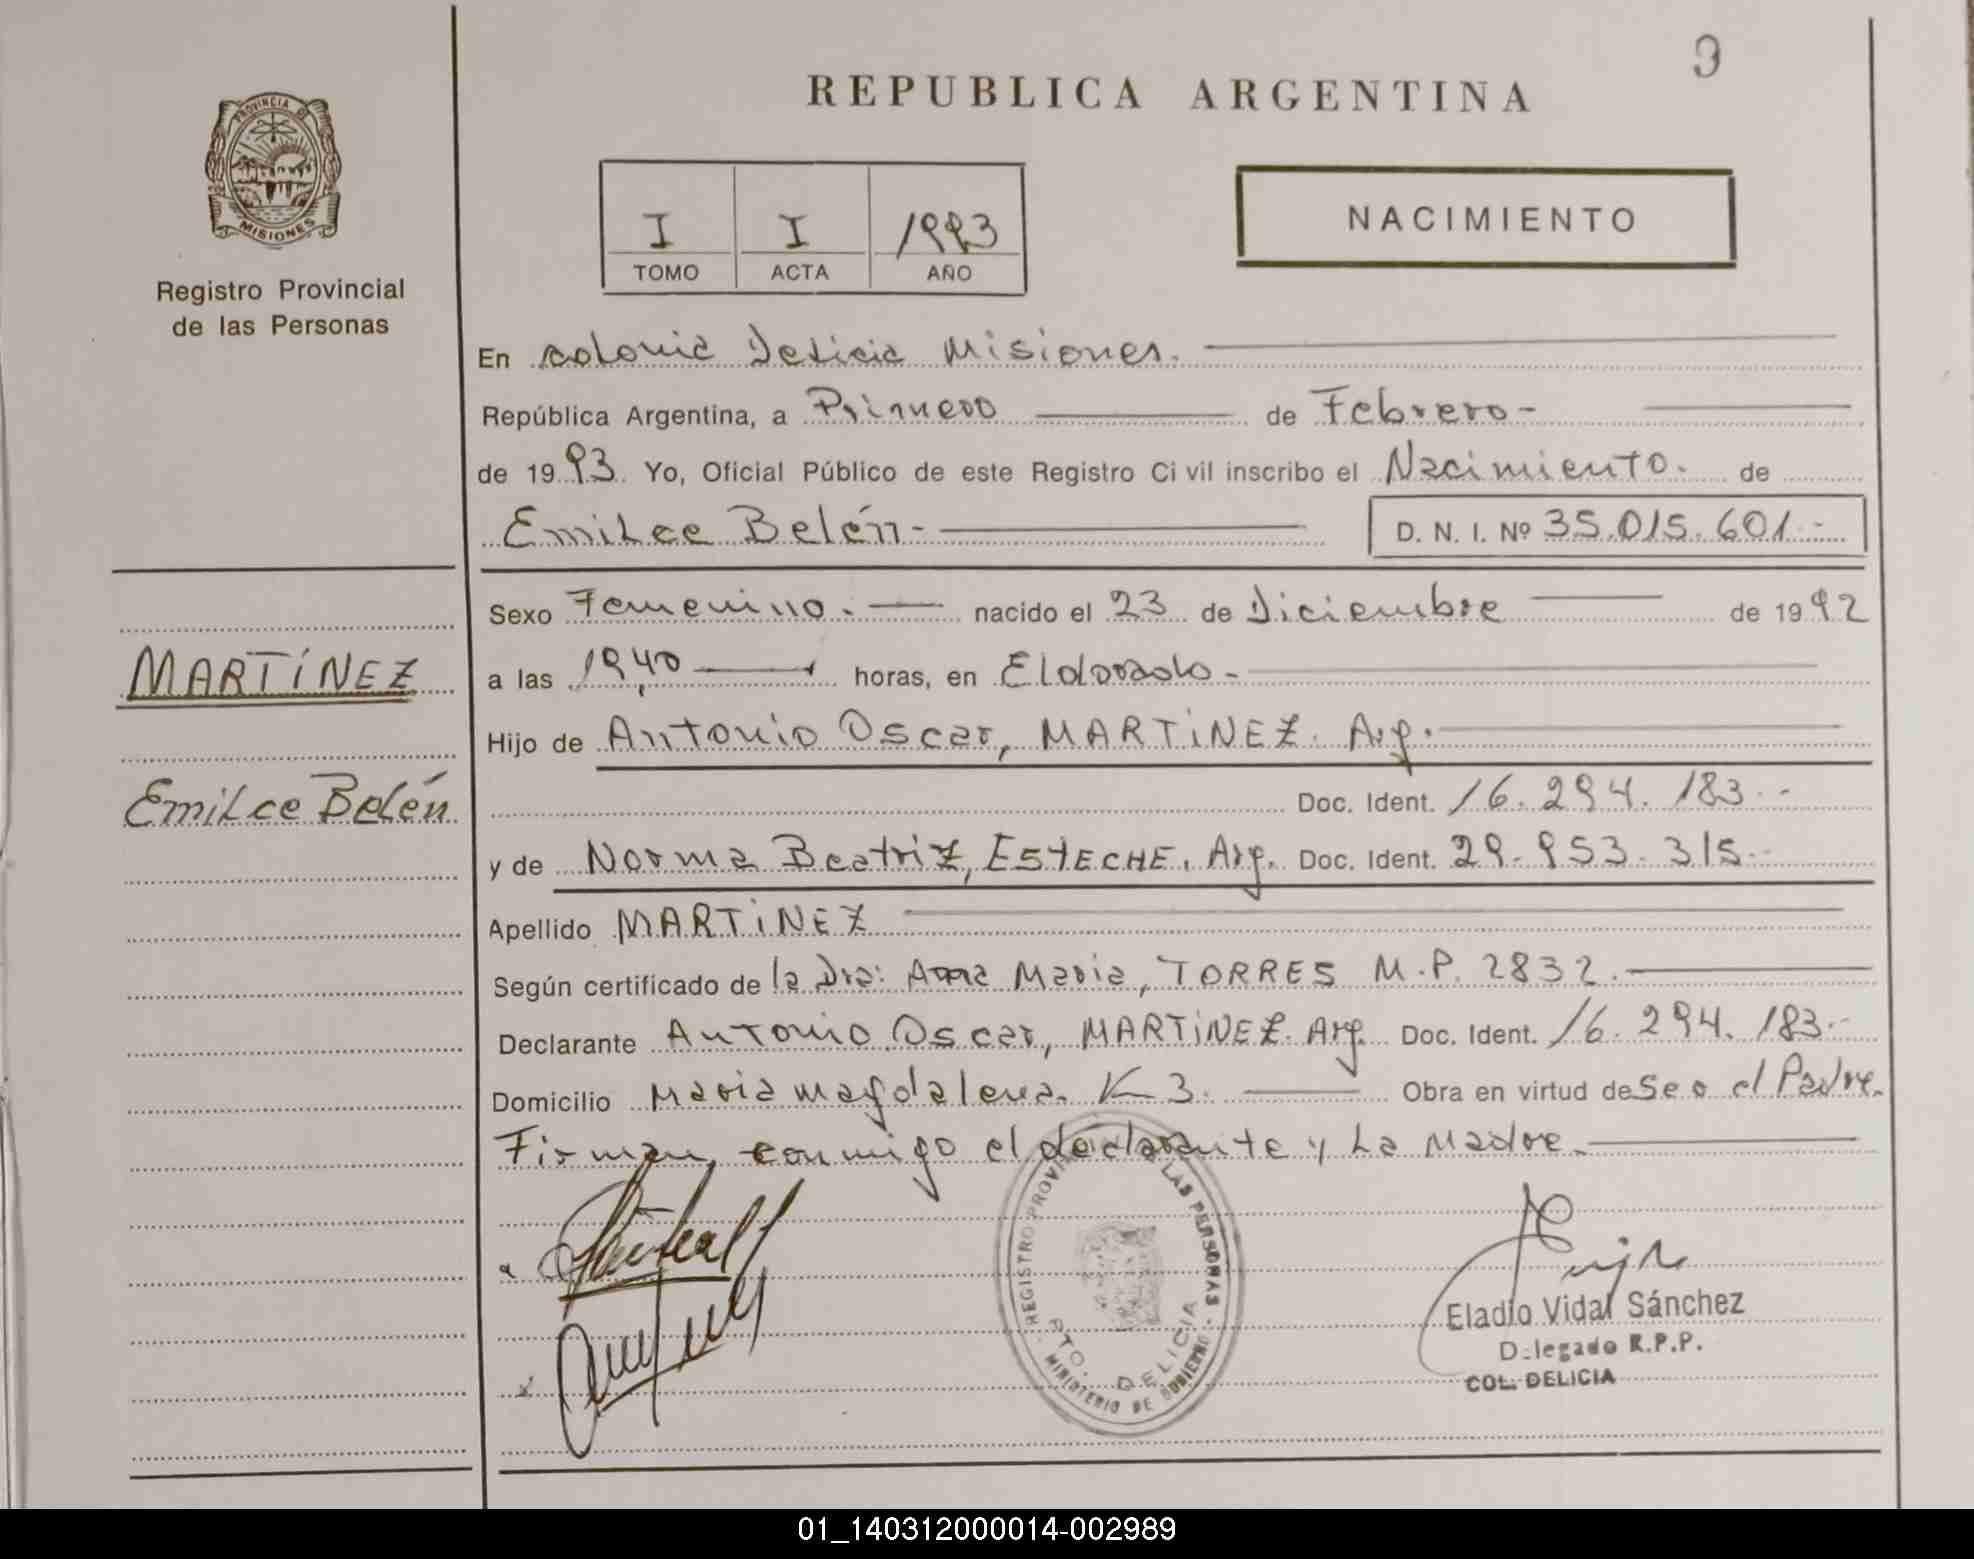 9
REPUBLICA ARGENTINA
PROVINCIA DE
MISIONES
Registro Provincial
de las Personas
I I 1993
TOMO ACTA AÑO
NACIMIENTO
En colonia Delicia Misiones.
República Argentina, a Primero de Febrero-
de 1993. Yo, Oficial Público de este Registro Civil inscribo el Nacimiento. de
Emilce Belén- D. N. I. Nº 35.015.601.-
Sexo Femenino. nacido el 23 de Diciembre de 1992
MARTÍNEZ
a las 19,40 horas, en Eldorado-
Hijo de Antonio Oscar, MARTINEZ. Arg.
Emilce Belén
Doc. Ident. 16.294.183.-
y de Norma Beatriz, ESTECHE. Arg. Doc. Ident. 29.953.315.-
Apellido MARTINEZ
Según certificado de la Dra: Ana Maria, TORRES M.P. 2832.
Declarante Antonio Oscar, MARTINEZ. Arg. Doc. Ident. 16.294.183.-
Domicilio Maria magdalena. K 3. Obra en virtud de Se o el Padre.
Firman, conmigo el declarante y La Madre.
REGISTRO PROVINCIAL DE LAS PERSONAS
PTO. DELICIA
MINISTERIO DE GOBIERNO
Eladio Vidal Sánchez
Delegado R.P.P.
COL. DELICIA
01_140312000014-002989